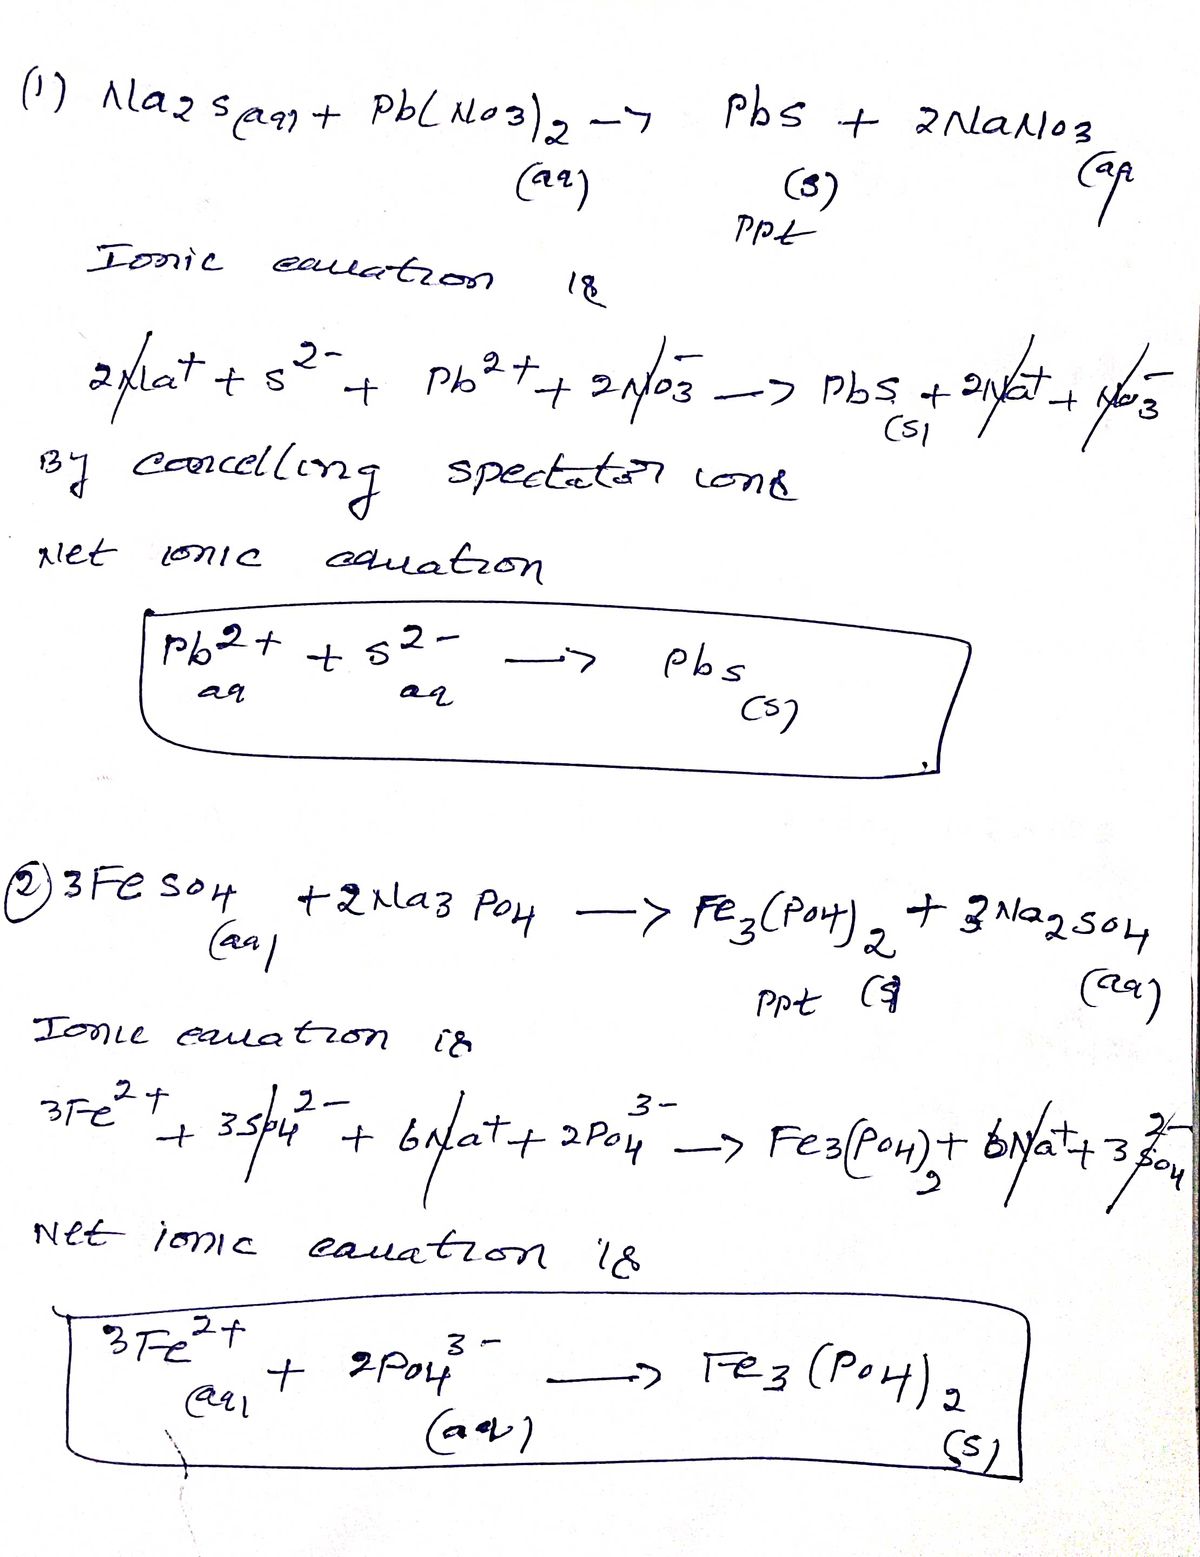 (1) Na2S(aq) + Pb(NO3)2 → PbS + 2NaNO3
(aq) (s) (aq
ppt
Ionic equation is
2Na+ + S2- + Pb2+ + 2NO3- → PbS(s) + 2Na+ + NO3-
By cancelling spectator ions
Net ionic equation
Pb2+ + S2- → PbS
aq aq (s)
(2) 3FeSO4 + 2Na3PO4 → Fe3(PO4)2 + 3Na2SO4
(aq) ppt (s (aq)
Ionic equation is
3Fe2+ + 3SO42- + 6Na+ + 2PO43- → Fe3(PO4)2 + 6Na+ + 3SO42-
Net ionic equation is
3Fe2+ + 2PO43- → Fe3(PO4)2
(aq) (aq) (s)